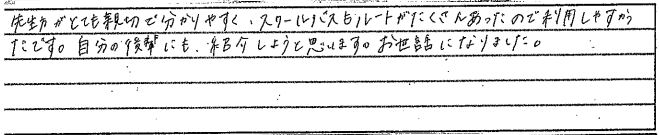 先生方がとても親切で分かりやすく、スクールバスもルートがたくさんあったので利用しやすかっ
たです。自分の後輩にも、紹介しようと思います。お世話になりました。